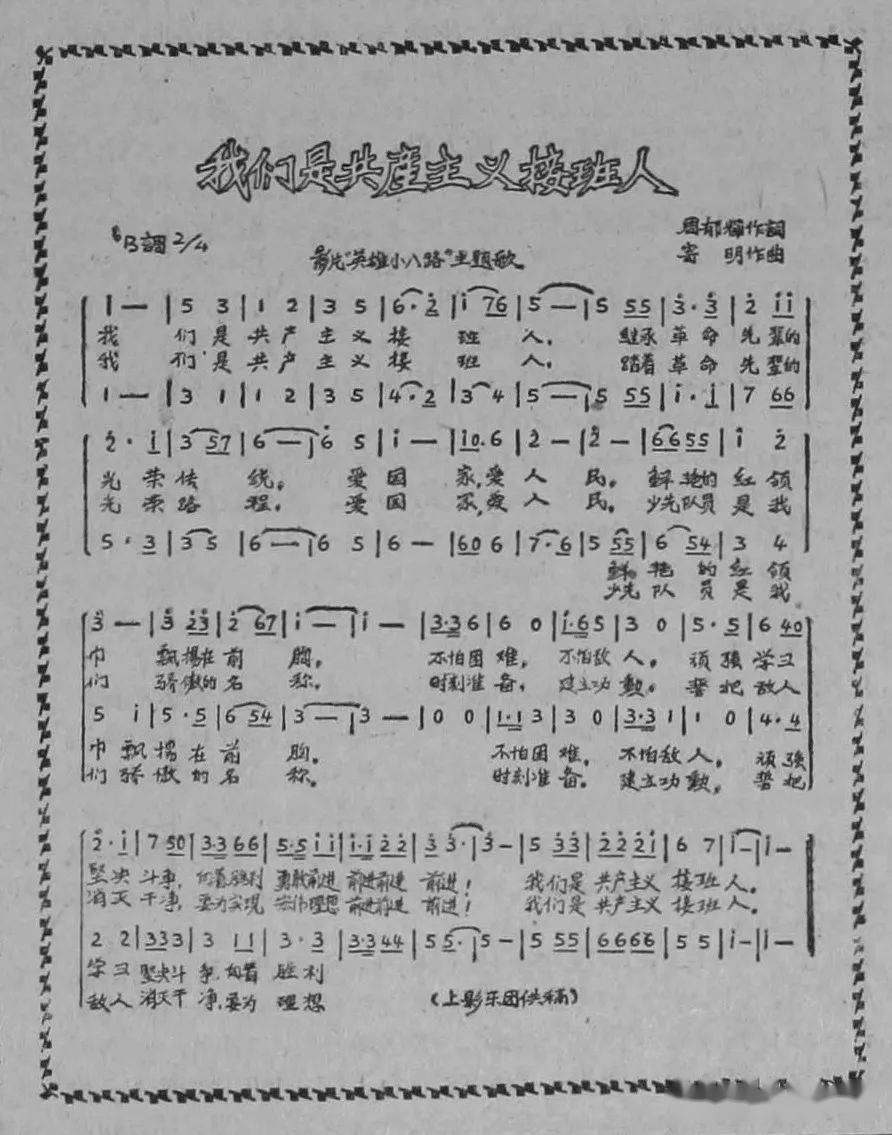 我们是共產主义接班人
周郁輝作詞
♭B調 2/4
影片"英雄小八路"主題歌
寄 明作曲
1 — | 5 3 | 1 2 | 3 5 | 6·2 | i 76 | 5 — | 5 55 | 3·3 | 2 ii
我 们是共产主义接 班 人。 继承革命先輩的
我 们是共产主义接 班 人。 踏着革命先輩的
1 — | 3 1 | 1 2 | 3 5 | 4·2 | 3 4 | 5 — | 5 55 | i·i | 7 66
2·i | 3 57 | 6 — | 6 5 | i — | i0·6 | 2 — | 2 — | 6655 | i 2
光荣传 统。 爱国 家,爱人民。鲜艳的红领
光荣路 程。 爱国 家,爱人民。少先队员是我
5·3 | 3 5 | 6 — | 6 5 | 6 — | 60 6 | 7·6 | 5 55 | 6 54 | 3 4
鲜艳的红领
少先队员是我
3 — | 3 23 | 2 67 | i — | i — | 3·3 6 | 6 0 | i·6 5 | 3 0 | 5·5 | 6 40
巾 飘揚在前 胸。 不怕困难,不怕敌人。顽强学习
们 骄傲的名 称。 时刻准备,建立功勲。誓把敌人
5 i | 5·5 | 6 54 | 3 — | 3 — | 0 0 | 1·1 3 | 3 0 | 3·3 1 | 1 0 | 4·4
巾飘揚在前 胸。 不怕困难,不怕敌人,顽强
们骄傲的名 称。 时刻准备。建立功勲,誓把
2·i | 7 50 | 3·3 66 | 5·5 ii | i·i 22 | 3 3· | 3 — | 5 33 | 222i | 6 7 | i — | i —
坚决斗争,向着胜利 勇敢前进 前进前进 前进! 我们是共产主义接班人。
消灭干净,要为实现 宏伟理想 前进前进 前进! 我们是共产主义接班人。
2 2 | 333 | 3 11 | 3·3 | 3·3 44 | 5 5· | 5 — | 5 55 | 6666 | 5 5 | i — | i —
学习坚决斗争,向着胜利
敌人消灭干净,要为理想
(上影乐团供稿)